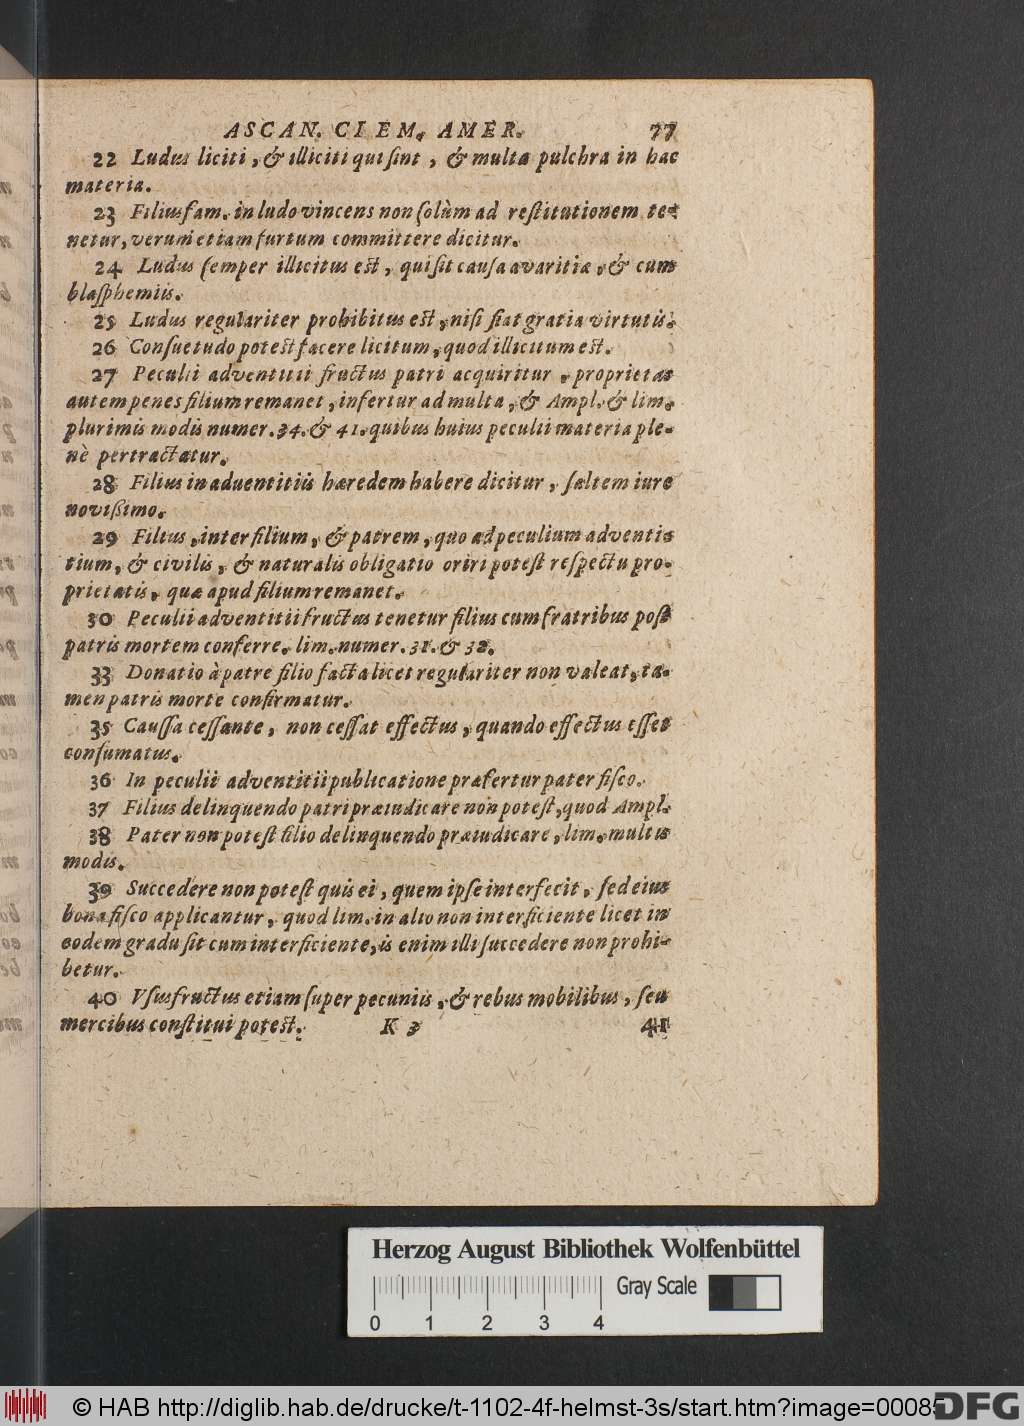 ASCAN. CIEM. AMER. 77
22 Ludus liciti, & illiciti qui ſint, & multa pulchra in hac
materia.
23 Filiusfam. in ludo vincens non ſolùm ad reſtitutionem te-
netur, verum etiam furtum committere dicitur.
24 Ludus ſemper illicitus est, qui ſit cauſa avaritiæ, & cum
blaſphemiis.
25 Ludus regulariter prohibitus est, niſi fiat gratia virtutis.
26 Conſuetudo potest facere licitum, quod illicitum est.
27 Peculii adventitii fructus patri acquiritur, proprietas
autem penes filium remanet, infertur ad multa, & Ampl. & lim.
plurimis modis numer. 34. & 41. quibus huius peculii materia ple-
nè pertractatur.
28 Filius in aduentitiis hæredem habere dicitur, ſaltem iure
novißimo.
29 Filius, inter filium, & patrem, quo ad peculium adventi-
tium, & civilis, & naturalis obligatio oriri poteſt reſpectu pro-
prietatis, quæ apud filium remanet.
30 Peculii adventitii fructus tenetur filius cum fratribus poſt
patris mortem conferre. lim. numer. 31. & 32.
33 Donatio à patre filio facta licet regulariter non valeat, ta-
men patris morte confirmatur.
35 Cauſſa ceſſante, non ceſſat effectus, quando effectus eſſet
conſumatus.
36 In peculii adventitii publicatione præfertur pater fiſco.
37 Filius delinquendo patri præiudicare non poteſt, quod Ampl.
38 Pater non poteſt filio delinquendo præiudicare, lim. multis
modis.
39 Succedere non poteſt quis ei, quem ipſe interfecit, ſed eius
bona fiſco applicantur, quod lim. in alio non interficiente licet in
eodem gradu ſit cum interficiente, is enim illi ſuccedere non prohi-
betur.
40 Vſusfructus etiam ſuper pecuniis, & rebus mobilibus, ſeu
mercibus conſtitui potest. K 3 41
Herzog August Bibliothek Wolfenbüttel
Gray Scale
0 1 2 3 4
© HAB http://diglib.hab.de/drucke/t-1102-4f-helmst-3s/start.htm?image=00085
DFG